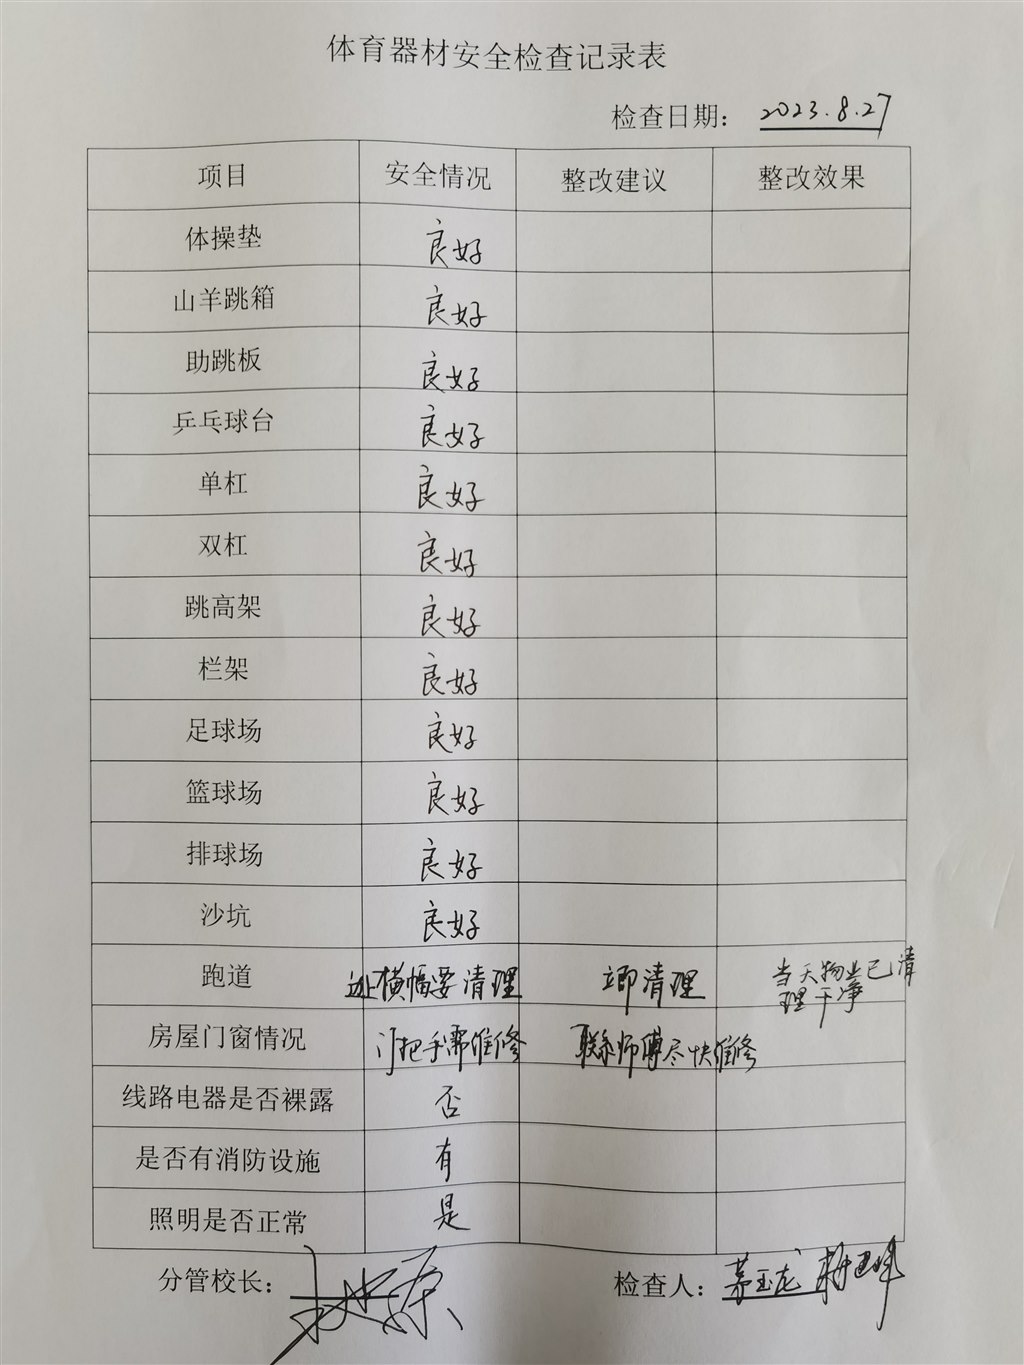 体育器材安全检查记录表
检查日期： 2023.8.27
项目 安全情况 整改建议 整改效果
体操垫 良好
山羊跳箱 良好
助跳板 良好
乒乓球台 良好
单杠 良好
双杠 良好
跳高架 良好
栏架 良好
足球场 良好
篮球场 良好
排球场 良好
沙坑 良好
跑道 边上横幅要清理 立即清理 当天物业已清
理干净
房屋门窗情况 门把手需维修 联系师傅尽快维修
线路电器是否裸露 否
是否有消防设施 有
照明是否正常 是
分管校长： 检查人：